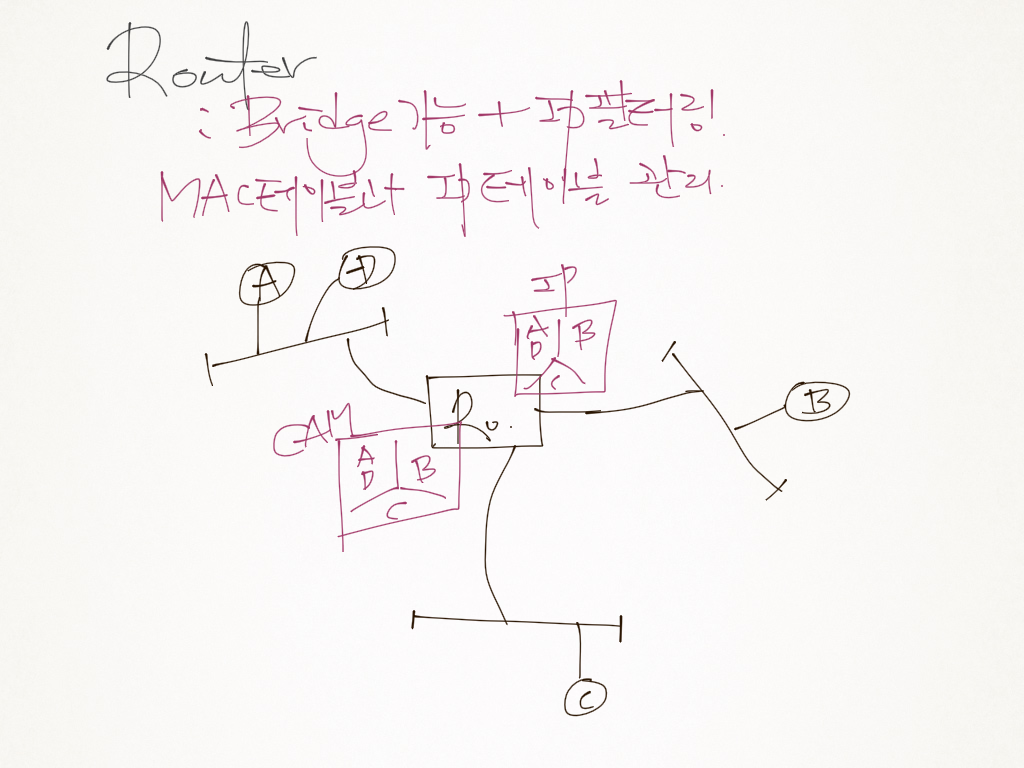 Router
: Bridge 기능 + IP 필터링.
MAC 테이블과 IP 테이블 관리.
A
D
IP
A B
D
C
Ro.
B
CAM
A
D B
C
C